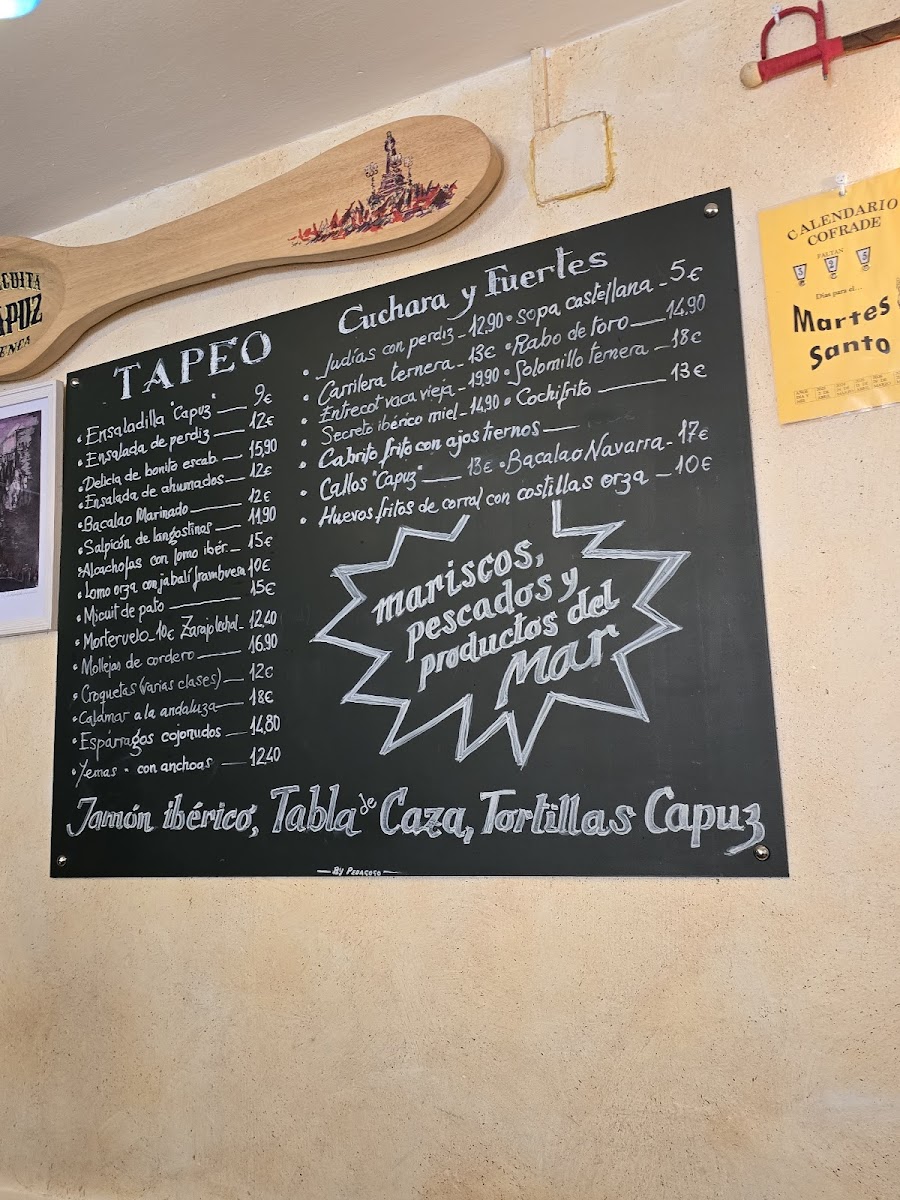 CAPUZ
TAPEO
• Ensaladilla "Capuz" — 9€
• Ensalada de perdiz — 12€
• Delicia de bonito escab. — 15,90
• Ensalada de ahumados — 12€
• Bacalao Marinado — 12€
• Salpicón de langostinos — 11,90
• Alcachofas con lomo ibér. — 15€
• Lomo orza con jabalí frambuesa 10€
• Micuit de pato — 15€
• Morteruelo - 10€ Zarajo lechal - 12,40
• Mollejas de cordero — 16,90
• Croquetas (varias clases) — 12€
• Calamar a la andaluza — 18€
• Espárragos cojonudos — 14,80
• Yemas - con anchoas — 12,40
Cuchara y Fuertes
• Judías con perdiz - 12,90 • sopa castellana - 5€
• Carrilera ternera - 13€ • Rabo de toro — 14,90
• Entrecot vaca vieja - 19,90 • Solomillo ternera - 18€
• Secreto ibérico miel - 14,90 • Cochifrito — 13€
• Cabrito frito con ajos tiernos —
• Callos "Capuz" — 13€ • Bacalao Navarra - 17€
• Huevos fritos de corral con costillas orza - 10€
mariscos,
pescados y
productos del
Mar
Jamón ibérico, Tabla de Caza, Tortillas Capuz
CALENDARIO
COFRADE
FALTAN
3 2 5
Días para el...
Martes
Santo